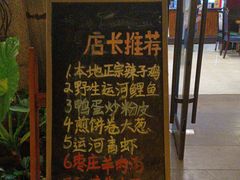 店长推荐
1本地正宗辣子鸡
2野生运河鲤鱼
3鸭蛋炒粉皮
4煎饼卷大葱
5运河青虾
6枣庄羊肉汤